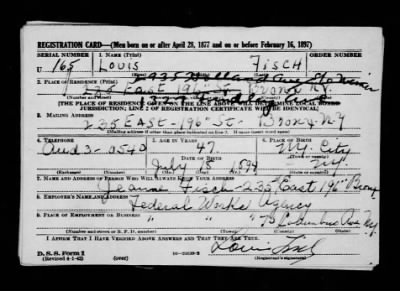 REGISTRATION CARD—(Men born on or after April 28, 1877 and on or before February 16, 1897)
SERIAL NUMBER 1. NAME (Print) ORDER NUMBER
U 165 LOUIS FISCH
2935 Holland Ave
2. PLACE OF RESIDENCE (Print)
235 East 196th St. Bronx N.Y.
[THE PLACE OF RESIDENCE GIVEN ON THE LINE ABOVE WILL DETERMINE LOCAL BOARD
JURISDICTION; LINE 2 OF REGISTRATION CERTIFICATE WILL BE IDENTICAL]
3. MAILING ADDRESS
235 EAST-196th St. Bronx-N.Y
[Mailing address if other than place indicated on line 2. If same insert word same]
4. TELEPHONE 5. AGE IN YEARS 6. PLACE OF BIRTH
47 N.Y. City
3-0540 DATE OF BIRTH
July 15 1894 N.Y.
7. NAME AND ADDRESS OF PERSON WHO WILL ALWAYS KNOW YOUR ADDRESS
Jeanne Fisch-235 East 196 Bronx
8. EMPLOYER'S NAME AND ADDRESS
Federal Works Agency
9. PLACE OF EMPLOYMENT OR BUSINESS
" " " 70 Columbus Ave N.Y.
(Number and street or R. F. D. number) (Town) (County) (State)
I AFFIRM THAT I HAVE VERIFIED ABOVE ANSWERS AND THAT THEY ARE TRUE.
Louis Fisch
D. S. S. Form 1
(Revised 4-1-42) (over) (Registrant's signature)